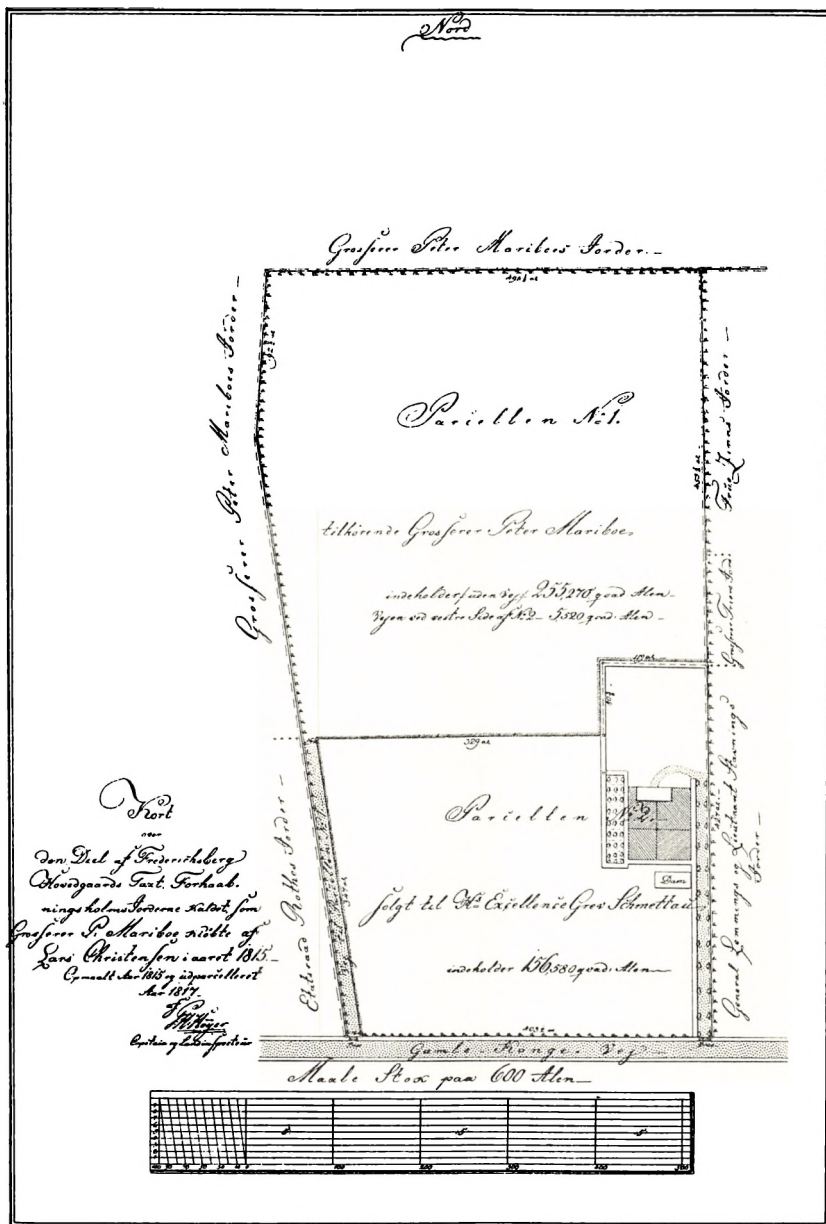 Nord
Grosserer Peter Mariboes Jorder.
Grosserer Peter Mariboes Jorder
Parcellen No 1.
Frue Jorder
tilhørende Grosserer Peter Mariboe,
indeholder uden Vej 255,270 qvad Alen
Vejen ved vestre Side af No 2 5,520 qvad. Alen
329 al
Parcellen No 2.
Dam
solgt til Hs Excellence Grev Schmettau
indeholder 156,580 qvad: Alen
Etatsraad Rothes Jorder
General Hemmings og Lieutnant Stannings
Jorder
Kort
over
den Deel af Frederichsberg
Hovedgaards Taxt. Forhaab-
ningsholms Jorderne kaldt, som
Grosserer P. Mariboe kiöbte af
Lars Christensen i aaret 1815.
Opmaalt Aar 1815 og udparcelleret
Aar 1817.
Gamle Konge Vej
Maale Stok paa 600 Alen
100 200 400 500